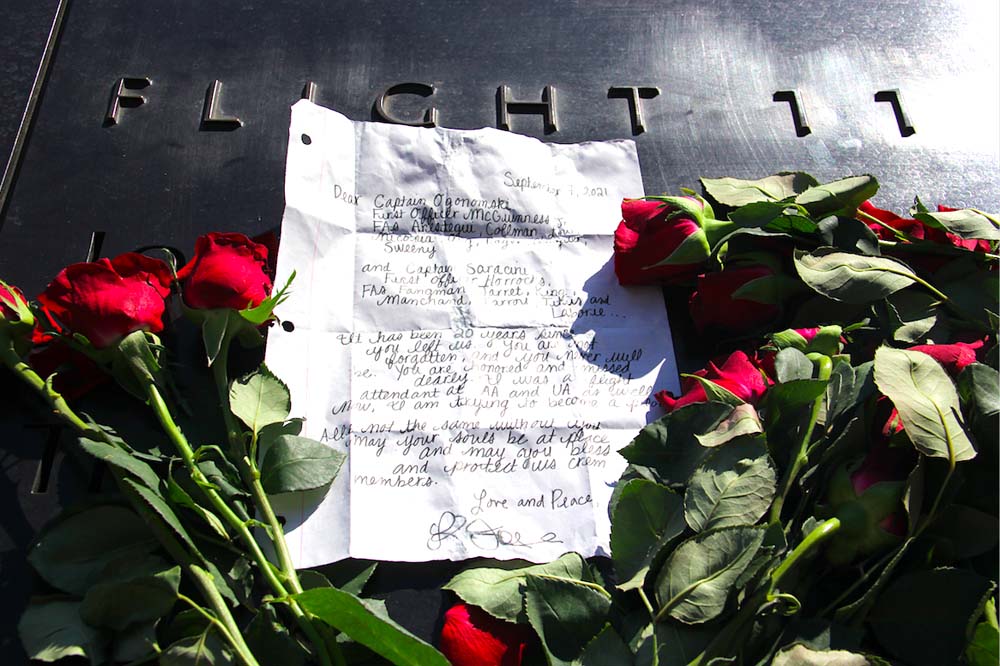 FLIGHT 11
September 7, 2021
Dear Captain Ogonowski
First Officer McGuinness Jr.
FAs Arestegui, Collman,
Sweeny
and Captain Saracini
First officer Horrocks,
FAs Fangman, Jarret, King,
Marchand, Tarrou, Titus and
Laborie...
It has been 20 years since
you left us. You are not
forgotten, and you never will
be. You are honored and missed
dearly. I was a flight
attendant at AA and UA as well.
Now, I am trying to become a
not the same without you
may your souls be at peace
and may you bless
and protect us crew
members.
Love and Peace,